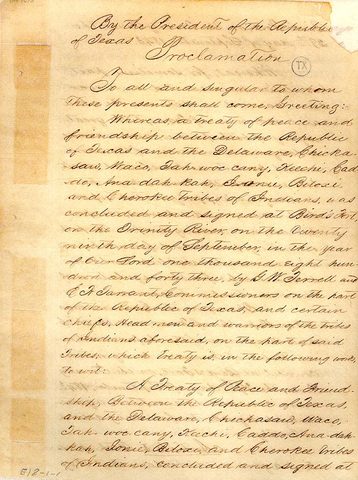 By the President of the Republic
of Texas
Proclamation
IX
To all and singular to whom
these presents shall come, Greeting:
Whereas, a treaty of peace and
friendship between the Republic
of Texas and the Delaware, Chicka
saw, Waco, Tah-woc cany, Keechi, Cad-
do, Ana-dah-kah, Ionie, Biloxi
and Cherokee Tribes of Indians, was
concluded and signed at Bird's Fort,
on the Trinity River, on the twenty
ninth day of September, in the year
of Our Lord one thousand eight hun-
dred and forty three, by G. W. Terrell and
E. H. Tarrant, Commissioners on the part
of the Republic of Texas, and certain
chiefs, Head men and warriors of the tribes
of Indians aforesaid, on the part of said
Tribes, which treaty is, in the following words,
to wit:
A Treaty of Peace and Friend-
ship, Between the Republic of Texas,
and the Delaware, Chickasaw, Waco,
Tah-woc cany, Keechi, Caddo, Ana-dah-
kah, Ionie, Biloxi, and Cherokee tribes
of Indians, concluded and signed at